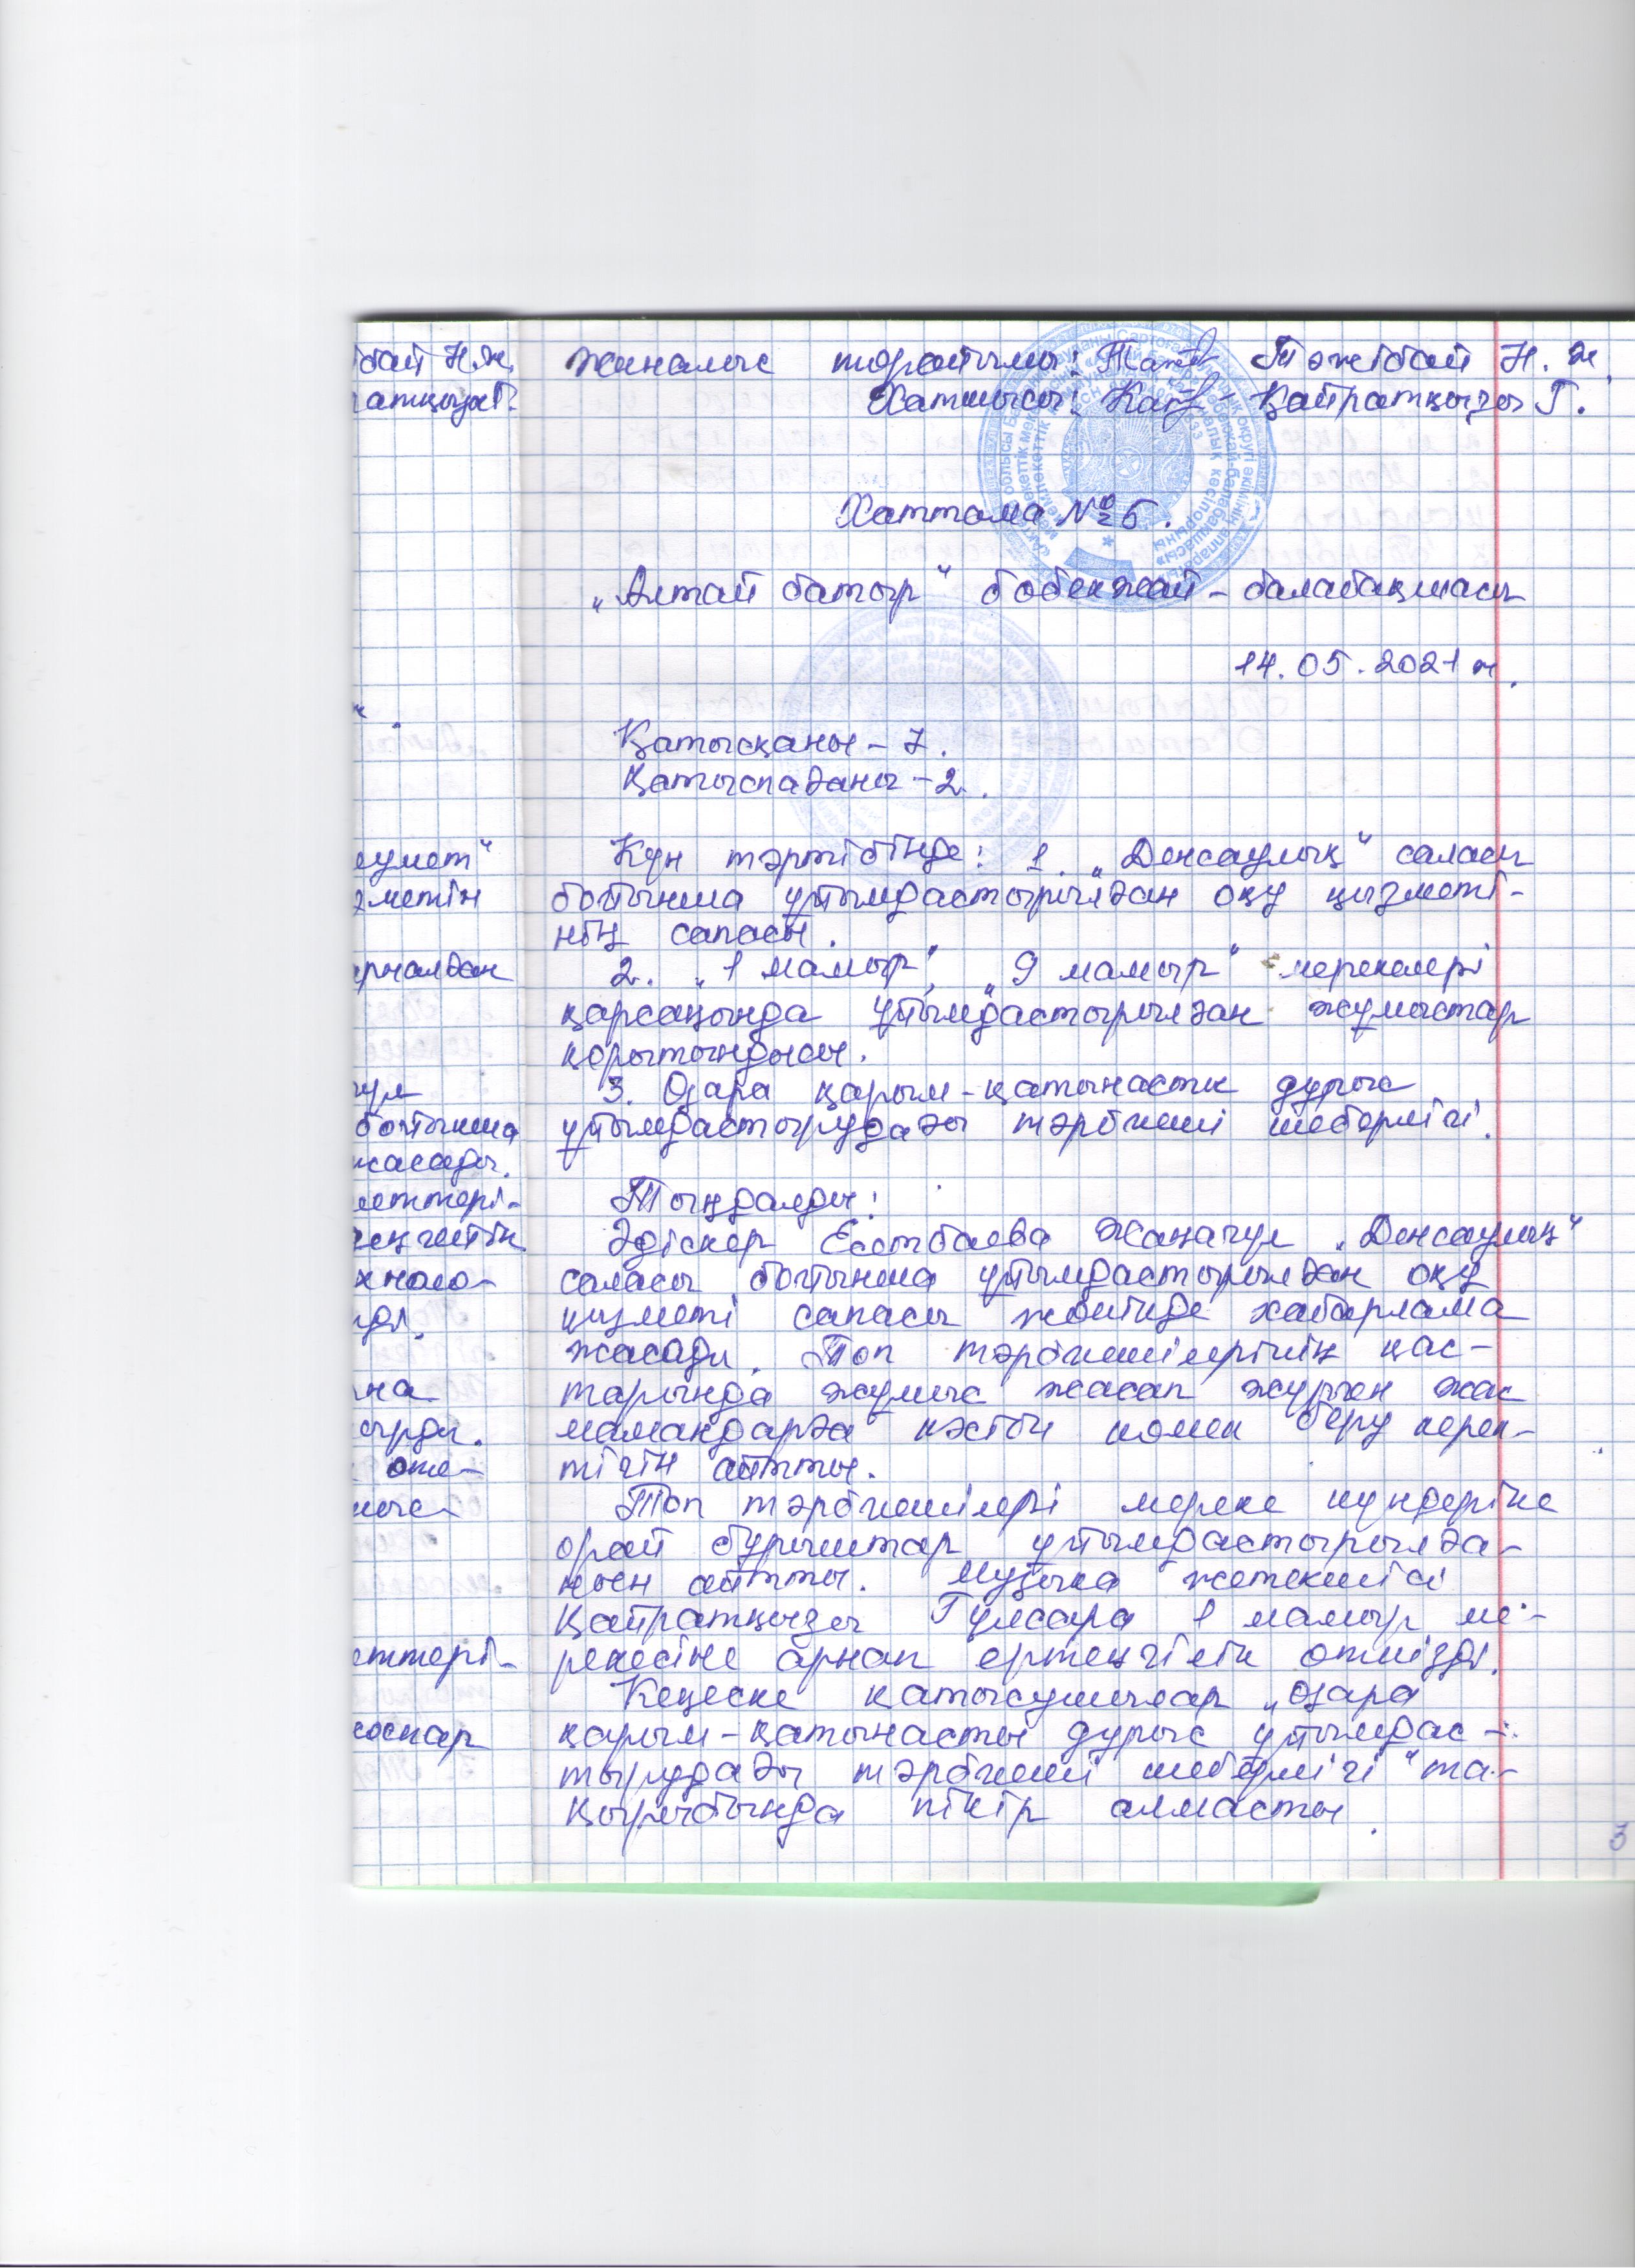 Жиналыс төрайымы: Тәжібай Н. Ж.
Хатшысы: Қайратқызы Г.
Хаттама № 5.
„Алтай батыр" бөбекжай - балабақшасы
14.05.2021 ж.
Қатысқаны - 7.
Қатыспағаны - 2.
Күн тәртібінде: 1. „Денсаулық" саласы
бойынша ұйымдастырылған оқу қызметі-
нің сапасы.
2. „1 мамыр", „9 мамыр" мерекелері
қарсаңында ұйымдастырылған жұмыстар
қорытындысы.
3. Өзара қарым-қатынасты дұрыс
ұйымдастырудағы тәрбиеші шеберлігі.
Тыңдалды:
Әдіскер Есетбаева Жаңагүл „Денсаулық"
саласы бойынша ұйымдастырылған оқу
қызметі сапасы жөнінде хабарлама
жасады. Топ тәрбиешілерінің қас-
тарында жұмыс жасап жүрген жас
мамандарға кәсіби көмек беру керек-
тігін айтты.
Топ тәрбиешілері мереке күндеріне
орай бұрыштар ұйымдастырылға-
нын айтты. Музыка жетекшісі
Қайратқызы Гүлсара 1 мамыр ме-
рекесіне арнап ертеңгілік өткізді.
Кеңеске қатысушылар „Өзара
қарым-қатынасты дұрыс ұйымдас-
тырудағы тәрбиеші шеберлігі" та-
қырыбында пікір алмасты.
3